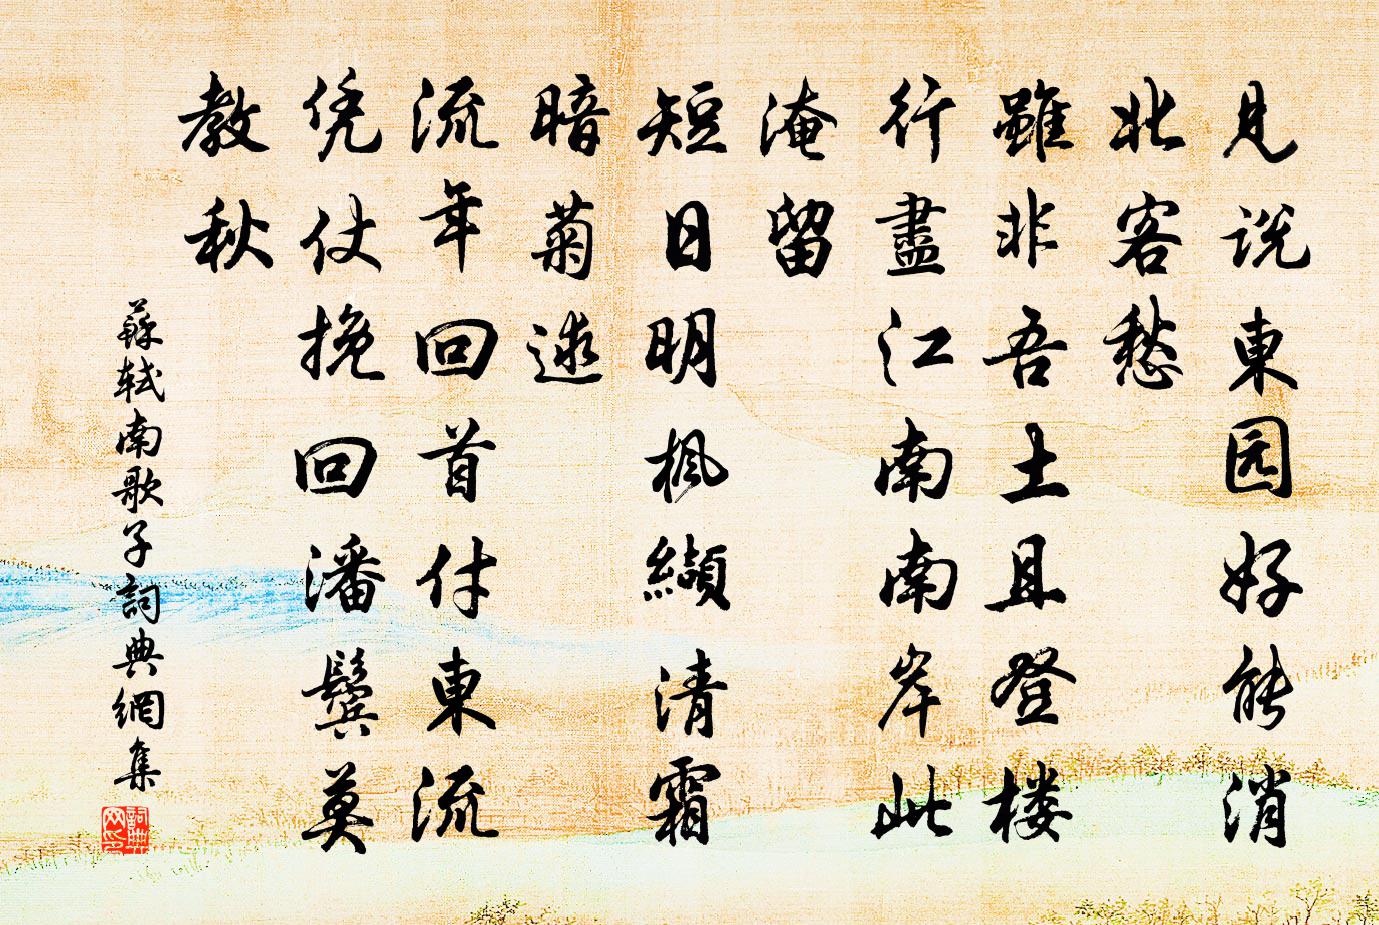 见说東园好能消
北客愁
雖非吾土且登楼
行盡江南南岸此
淹留
短日明楓纈清霜
暗菊逑
流年回首付東流
凭仗挽回潘鬓莫
教秋
蘇轼南歌子詞典網集
詞典网印